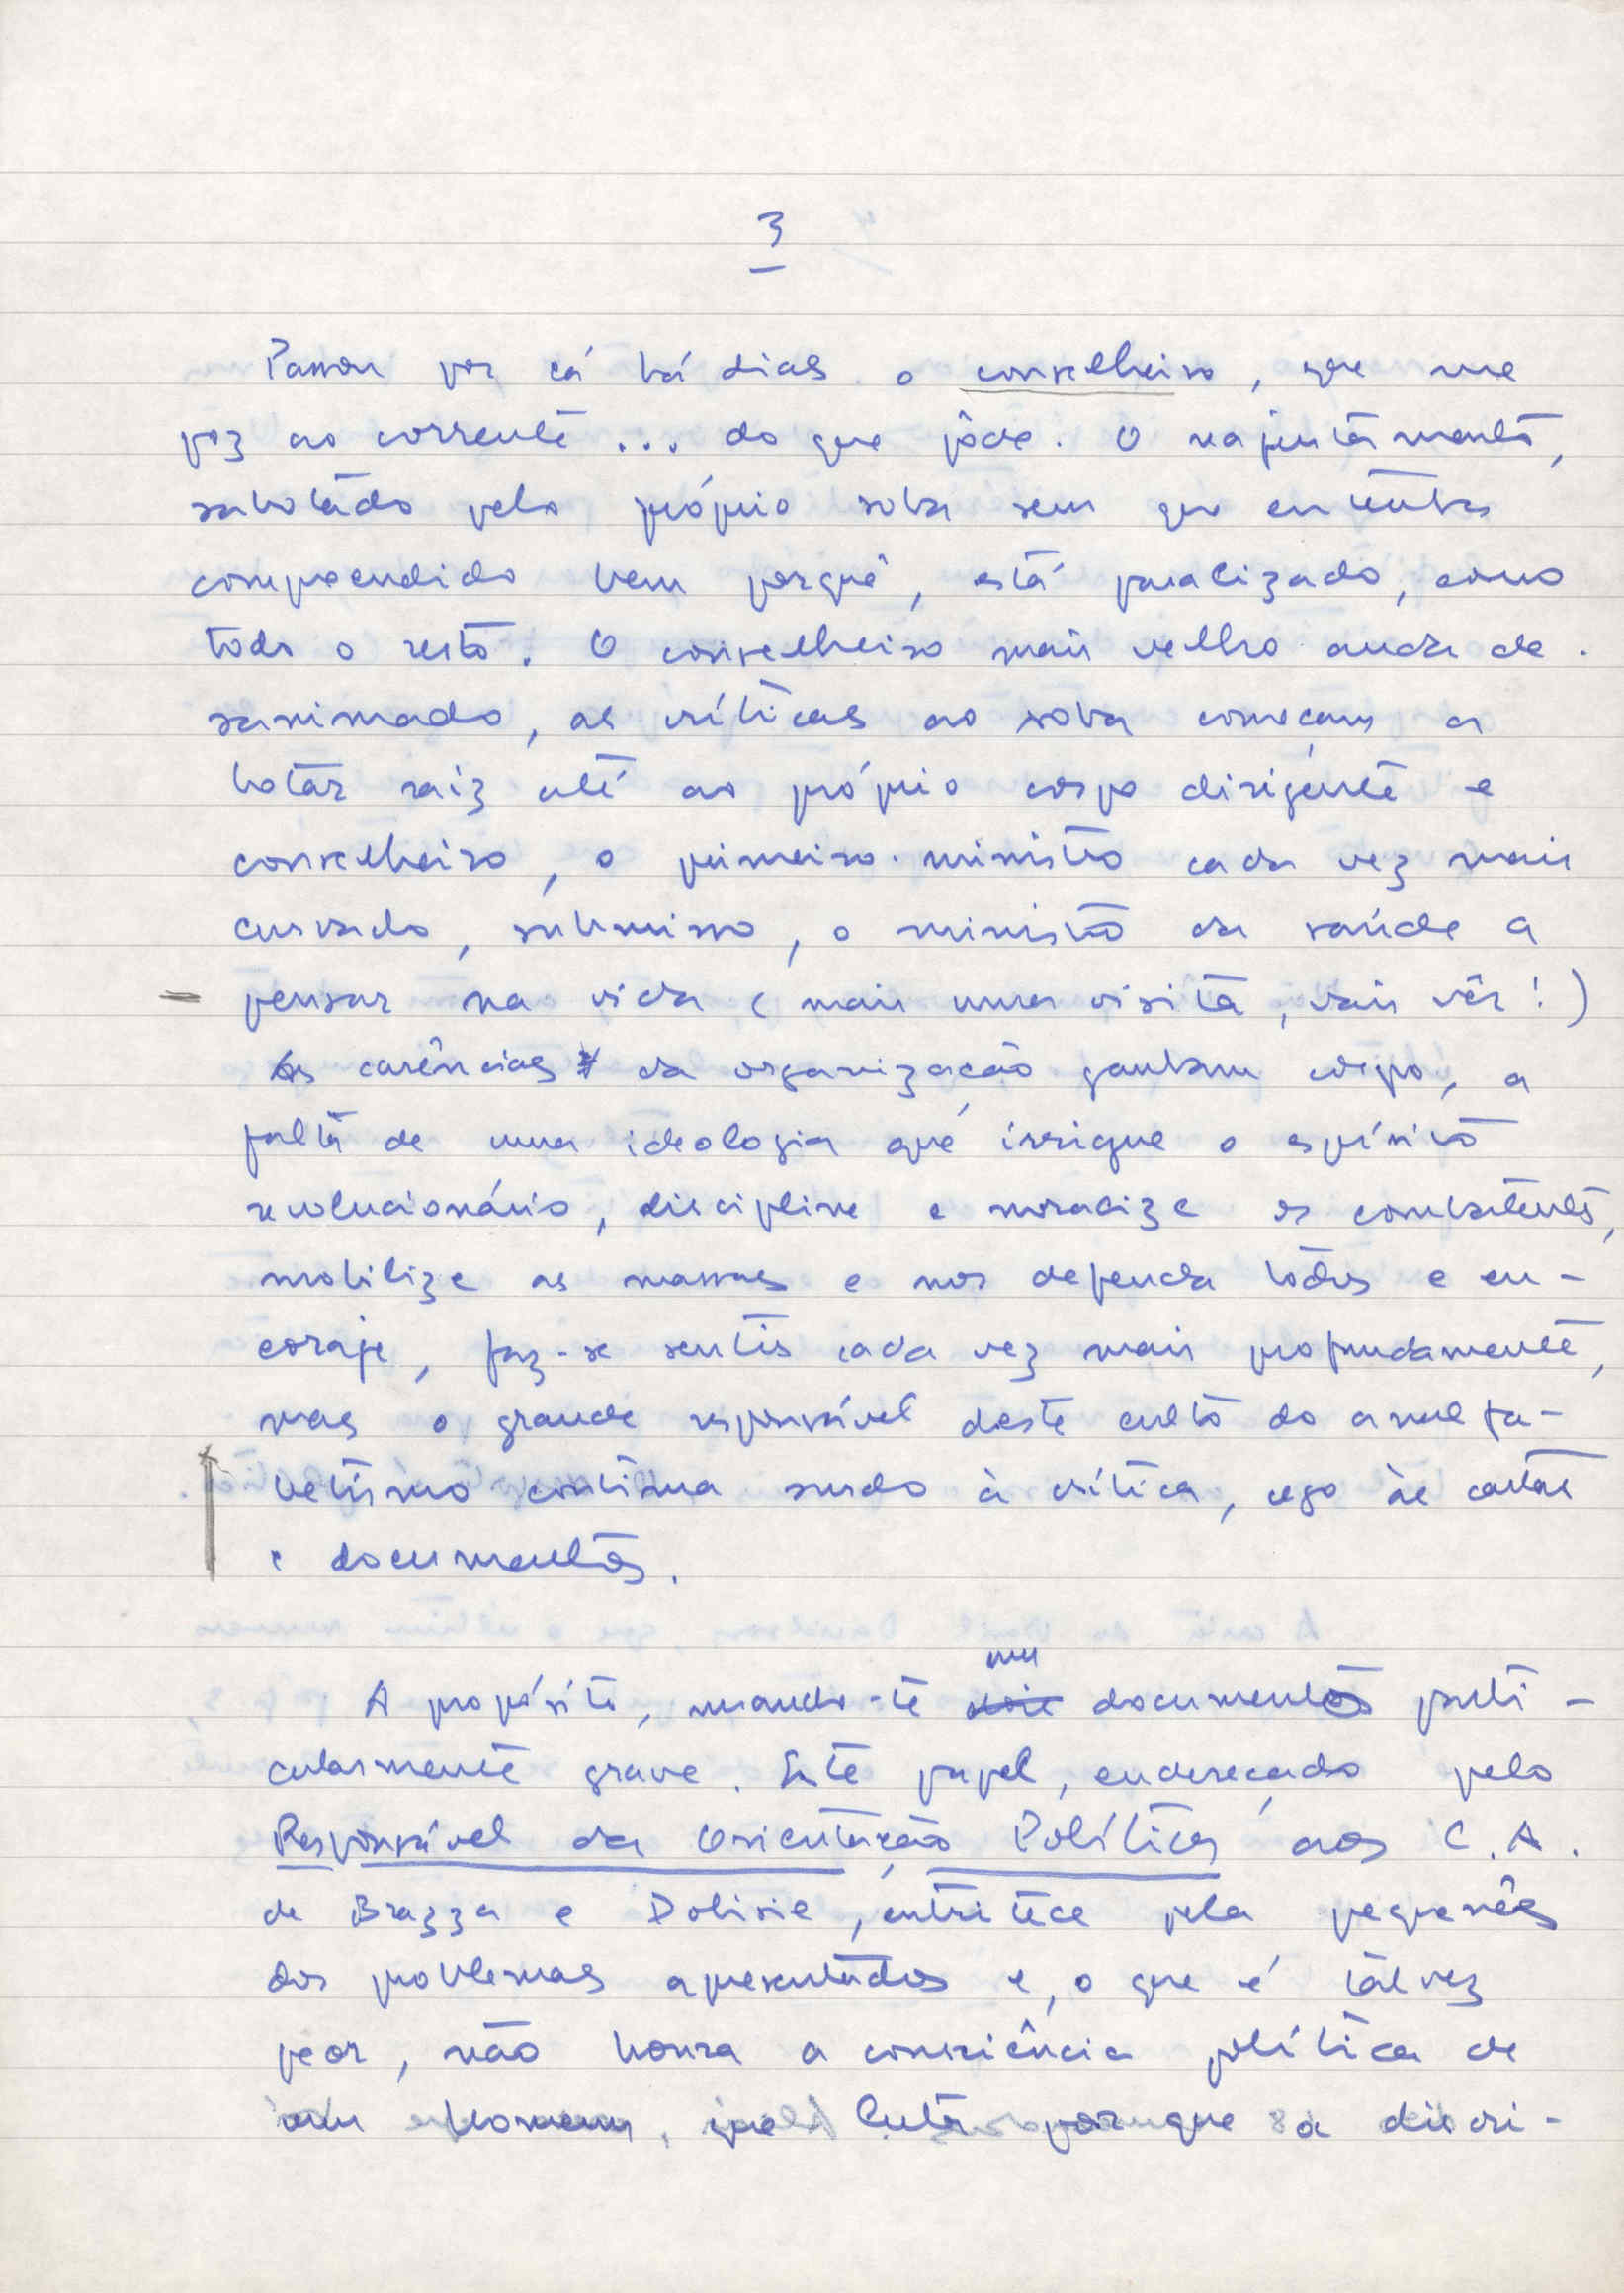 3
Passou por cá há dias o conselheiro, que me
poz ao corrente ... do que pôde. O reajuntamento,
sabotado pelo próprio soba sem que eu tenha
compreendido bem porquê, está paralizado, como
todo o resto. O conselheiro mais velho anda de-
sanimado, as críticas ao soba começam a
botar raiz até ao próprio corpo dirigente e
conselheiro, o primeiro-ministro cada vez mais
curvado, submisso, o ministro da saúde a
pensar na vida (mais uma visita, vais vêr!)
As carências da organização ganham corpo, a
falta de uma ideologia que irrigue o espírito
revolucionário, discipline e moralize os combatentes,
mobilize as massas e nos defenda todos e en-
coraje, faz-se sentir cada vez mais profundamente,
mas o grande responsável deste culto do analfa-
betismo continua surdo à crítica, cego às cartas
e documentos.
A propósito, mando-te um documento parti-
cularmente grave. Este papel, endereçado pelo
Responsável da Orientação Política aos C.A.
de Brazza e Dolisie, entristece pela pequenês
dos problemas apresentados e, o que é talvez
peor, não honra a consciência política de
um homem, que luta por que a discri-